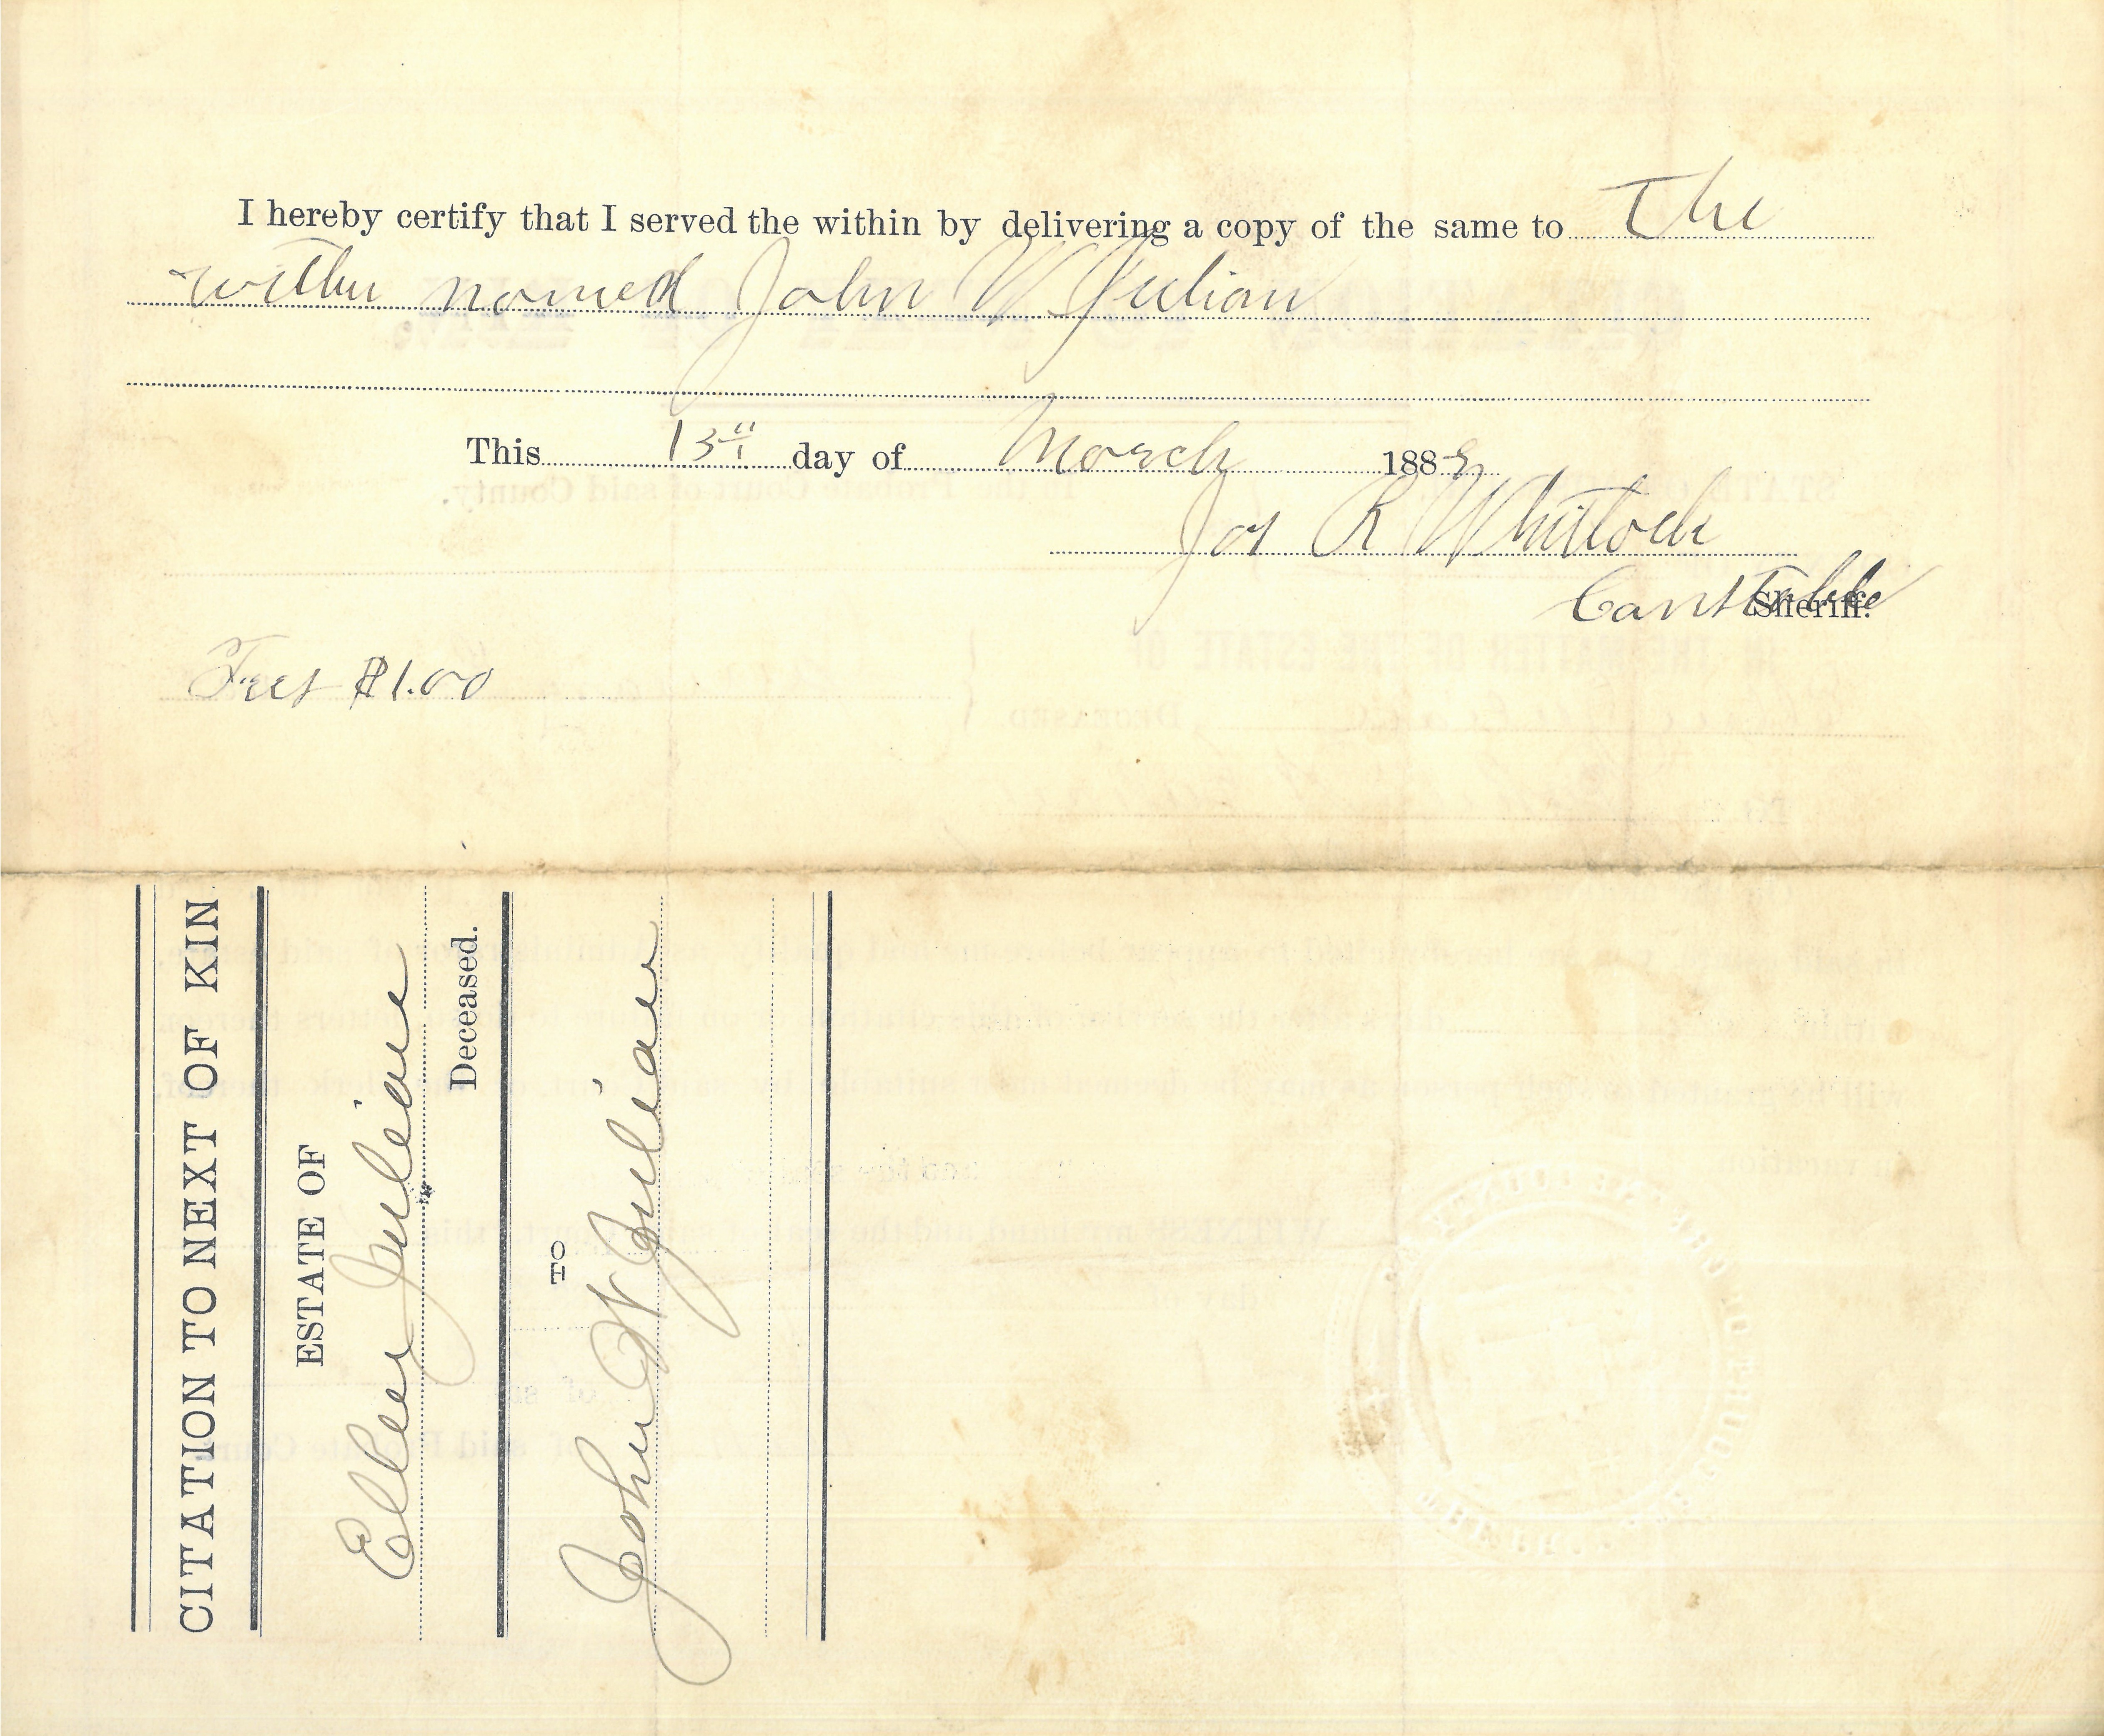 I hereby certify that I served the within by delivering a copy of the same to The
within named John W Julian
This 13th day of March 1889
Jas R Whitlock
Constable
Sheriff.
Fees $1.00
CITATION TO NEXT OF KIN
ESTATE OF
Ellen Julian
Deceased.
TO
John W Julian